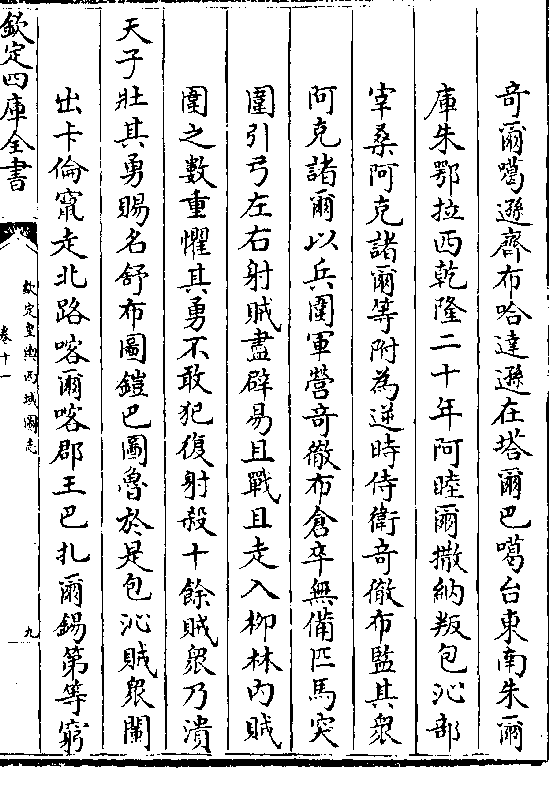 奇爾噶遜齊布哈達遜在塔爾巴噶台東南朱爾
庫朱鄂拉西乾隆二十年阿睦爾撒納叛包沁部
宰桑阿克諸爾等附為逆時侍衛奇徹布監其衆
阿克諸爾以兵圍軍營奇徹布倉卒無備匹馬突
圍引弓左右射賊盡辟易且戰且走入栁林内賊
圍之數重懼其勇不敢犯復射殺十餘賊衆乃潰
天子壯其勇賜名舒布圖鎧巴圖魯於是包沁賊衆闌
出卡倫竄走北路喀爾喀郡王巴扎爾錫第等窮
欽定四庫全書
欽定皇輿西域圖志
卷十一
九